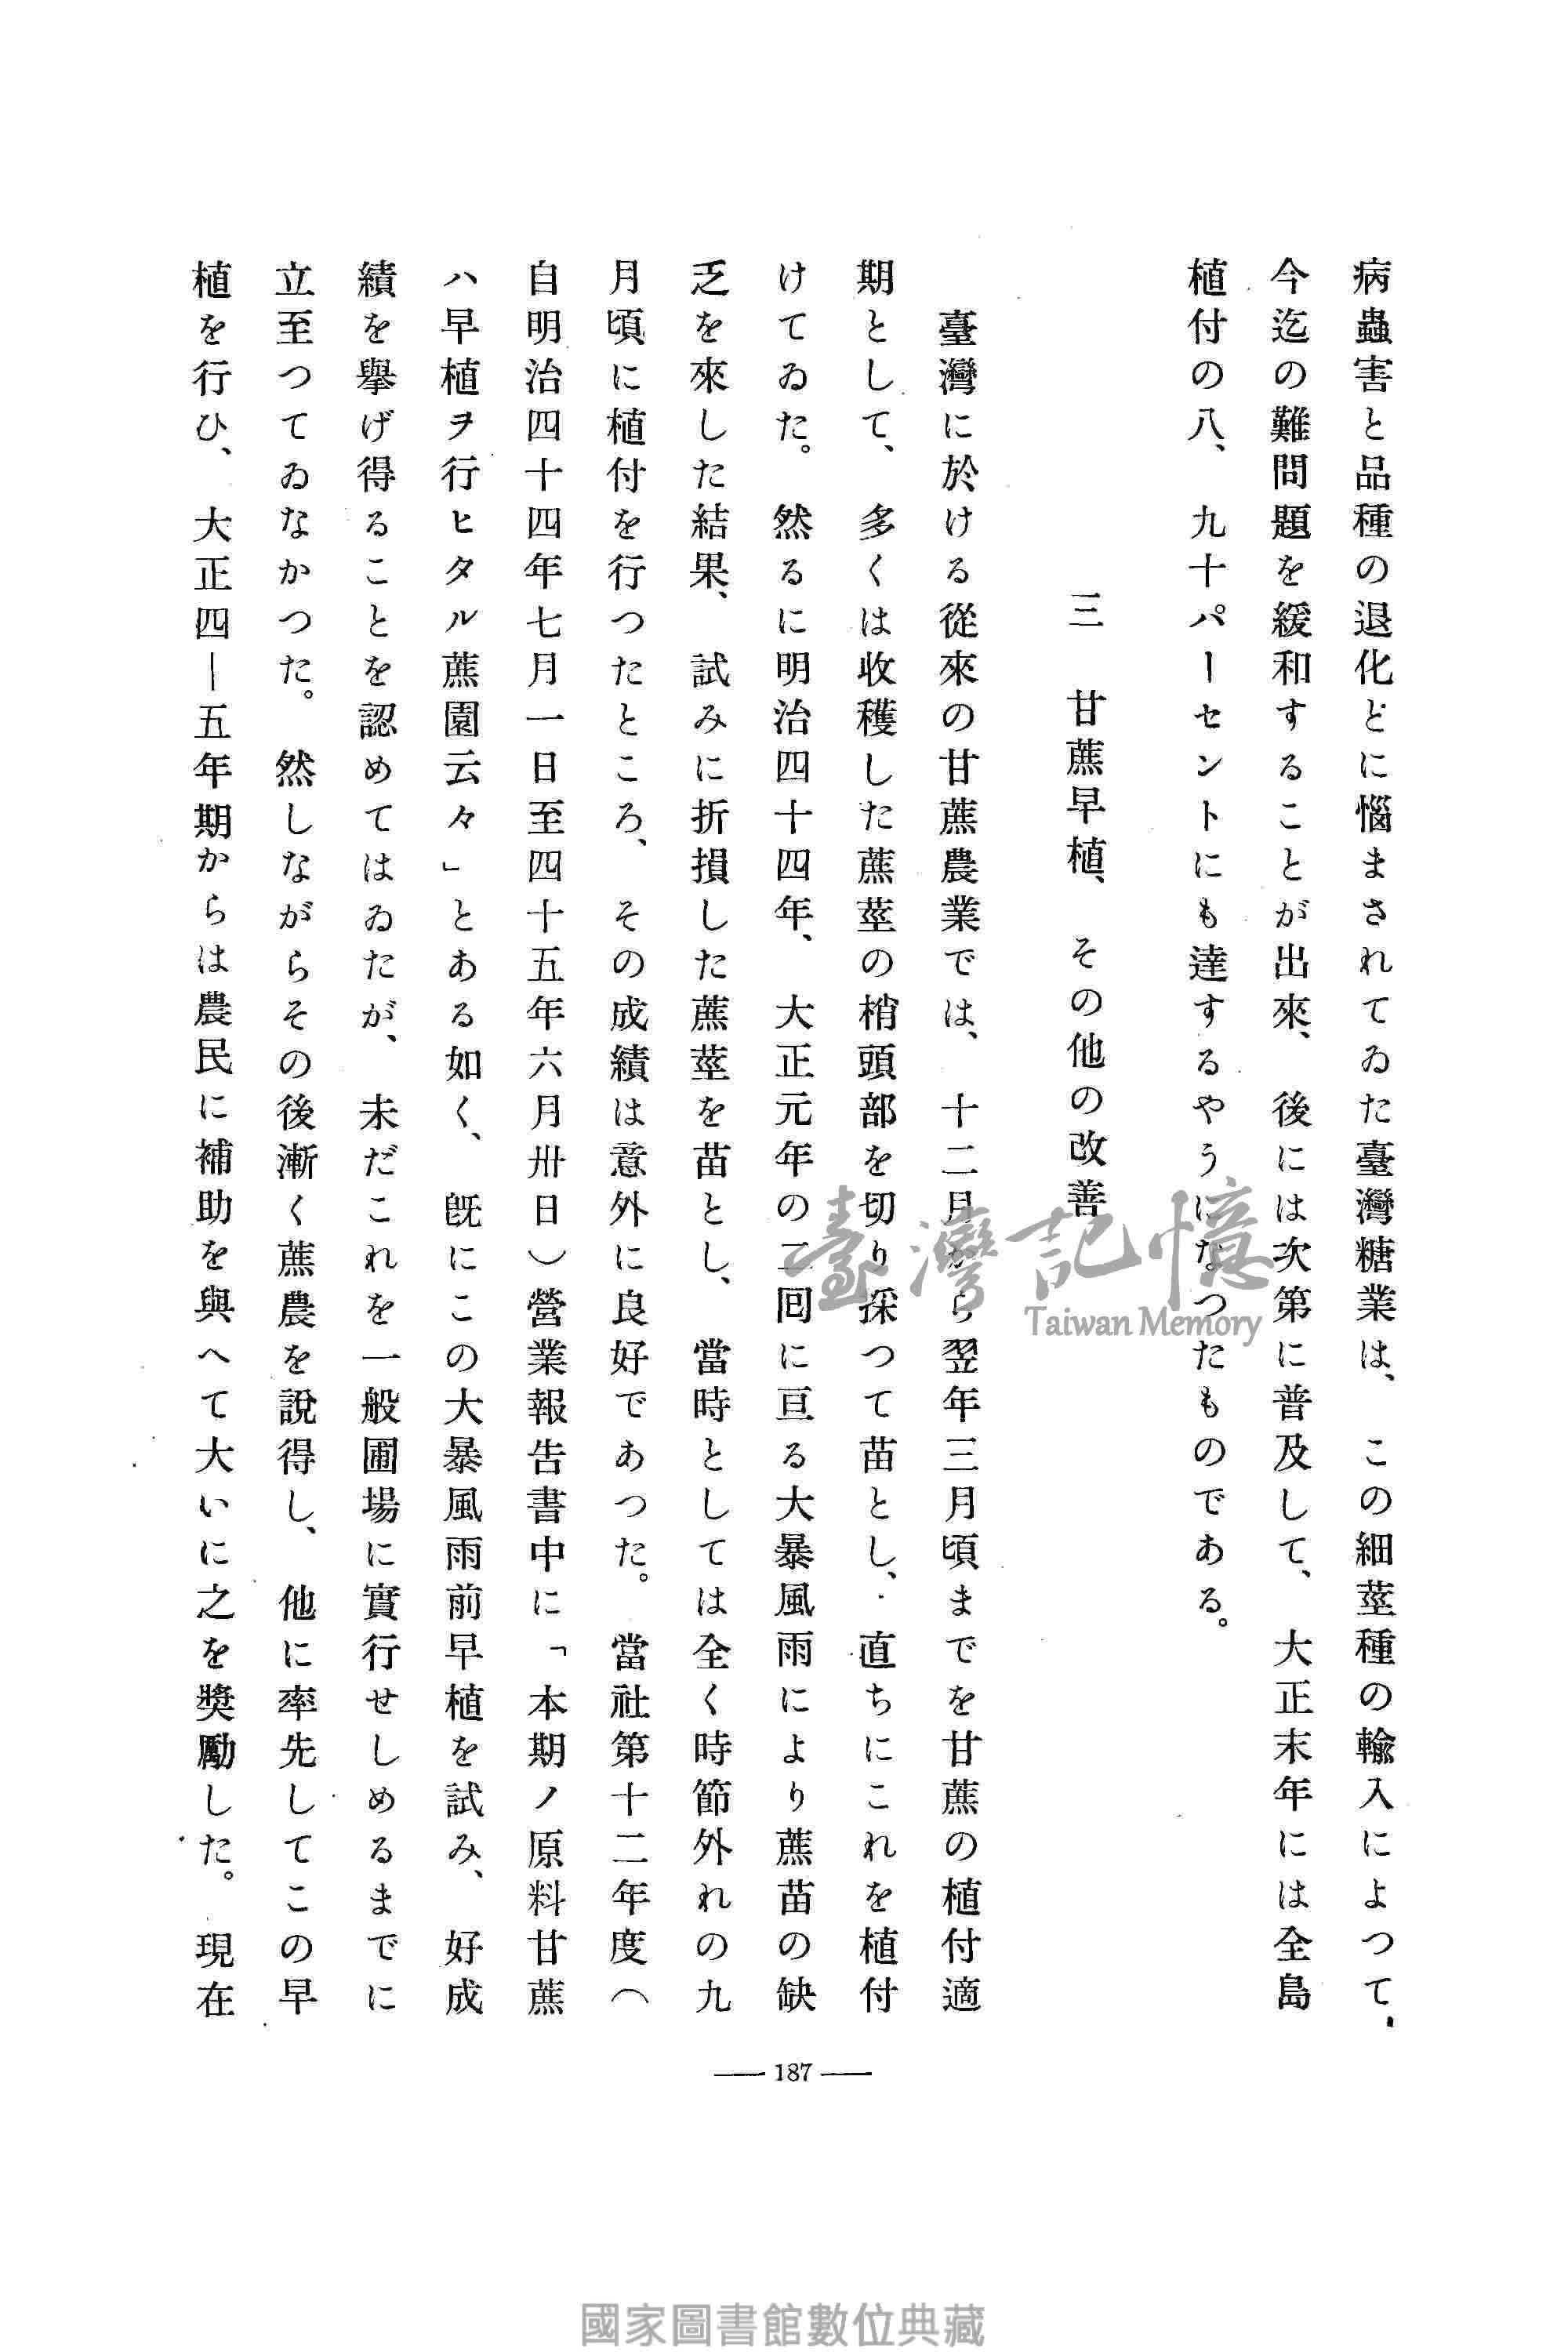 病蟲害と品種の退化とに惱まされてゐた臺灣糖業は、この細莖種の輸入によつて、
今迄の難問題を緩和することが出來、後には次第に普及して、大正末年には全島
植付の八、九十パーセントにも達するやうになつたものである。
三 甘蔗早植、その他の改善
臺灣に於ける從來の甘蔗農業では、十二月から翌年三月頃までを甘蔗の植付適
期として、多くは收穫した蔗莖の梢頭部を切り採つて苗とし、直ちにこれを植付
けてゐた。然るに明治四十四年、大正元年の二囘に亘る大暴風雨により蔗苗の缺
乏を來した結果、試みに折損した蔗莖を苗とし、當時としては全く時節外れの九
月頃に植付を行つたところ、その成績は意外に良好であつた。當社第十二年度（
自明治四十四年七月一日至四十五年六月卅日）營業報告書中に「本期ノ原料甘蔗
ハ早植ヲ行ヒタル蔗園云々」とある如く、既にこの大暴風雨前早植を試み、好成
績を擧げ得ることを認めてはゐたが、未だこれを一般圃場に實行せしめるまでに
立至つてゐなかつた。然しながらその後漸く蔗農を說得し、他に率先してこの早
植を行ひ、大正四—五年期からは農民に補助を與へて大いに之を奬勵した。現在
— 187 —
臺灣記憶
Taiwan Memory
國家圖書館數位典藏